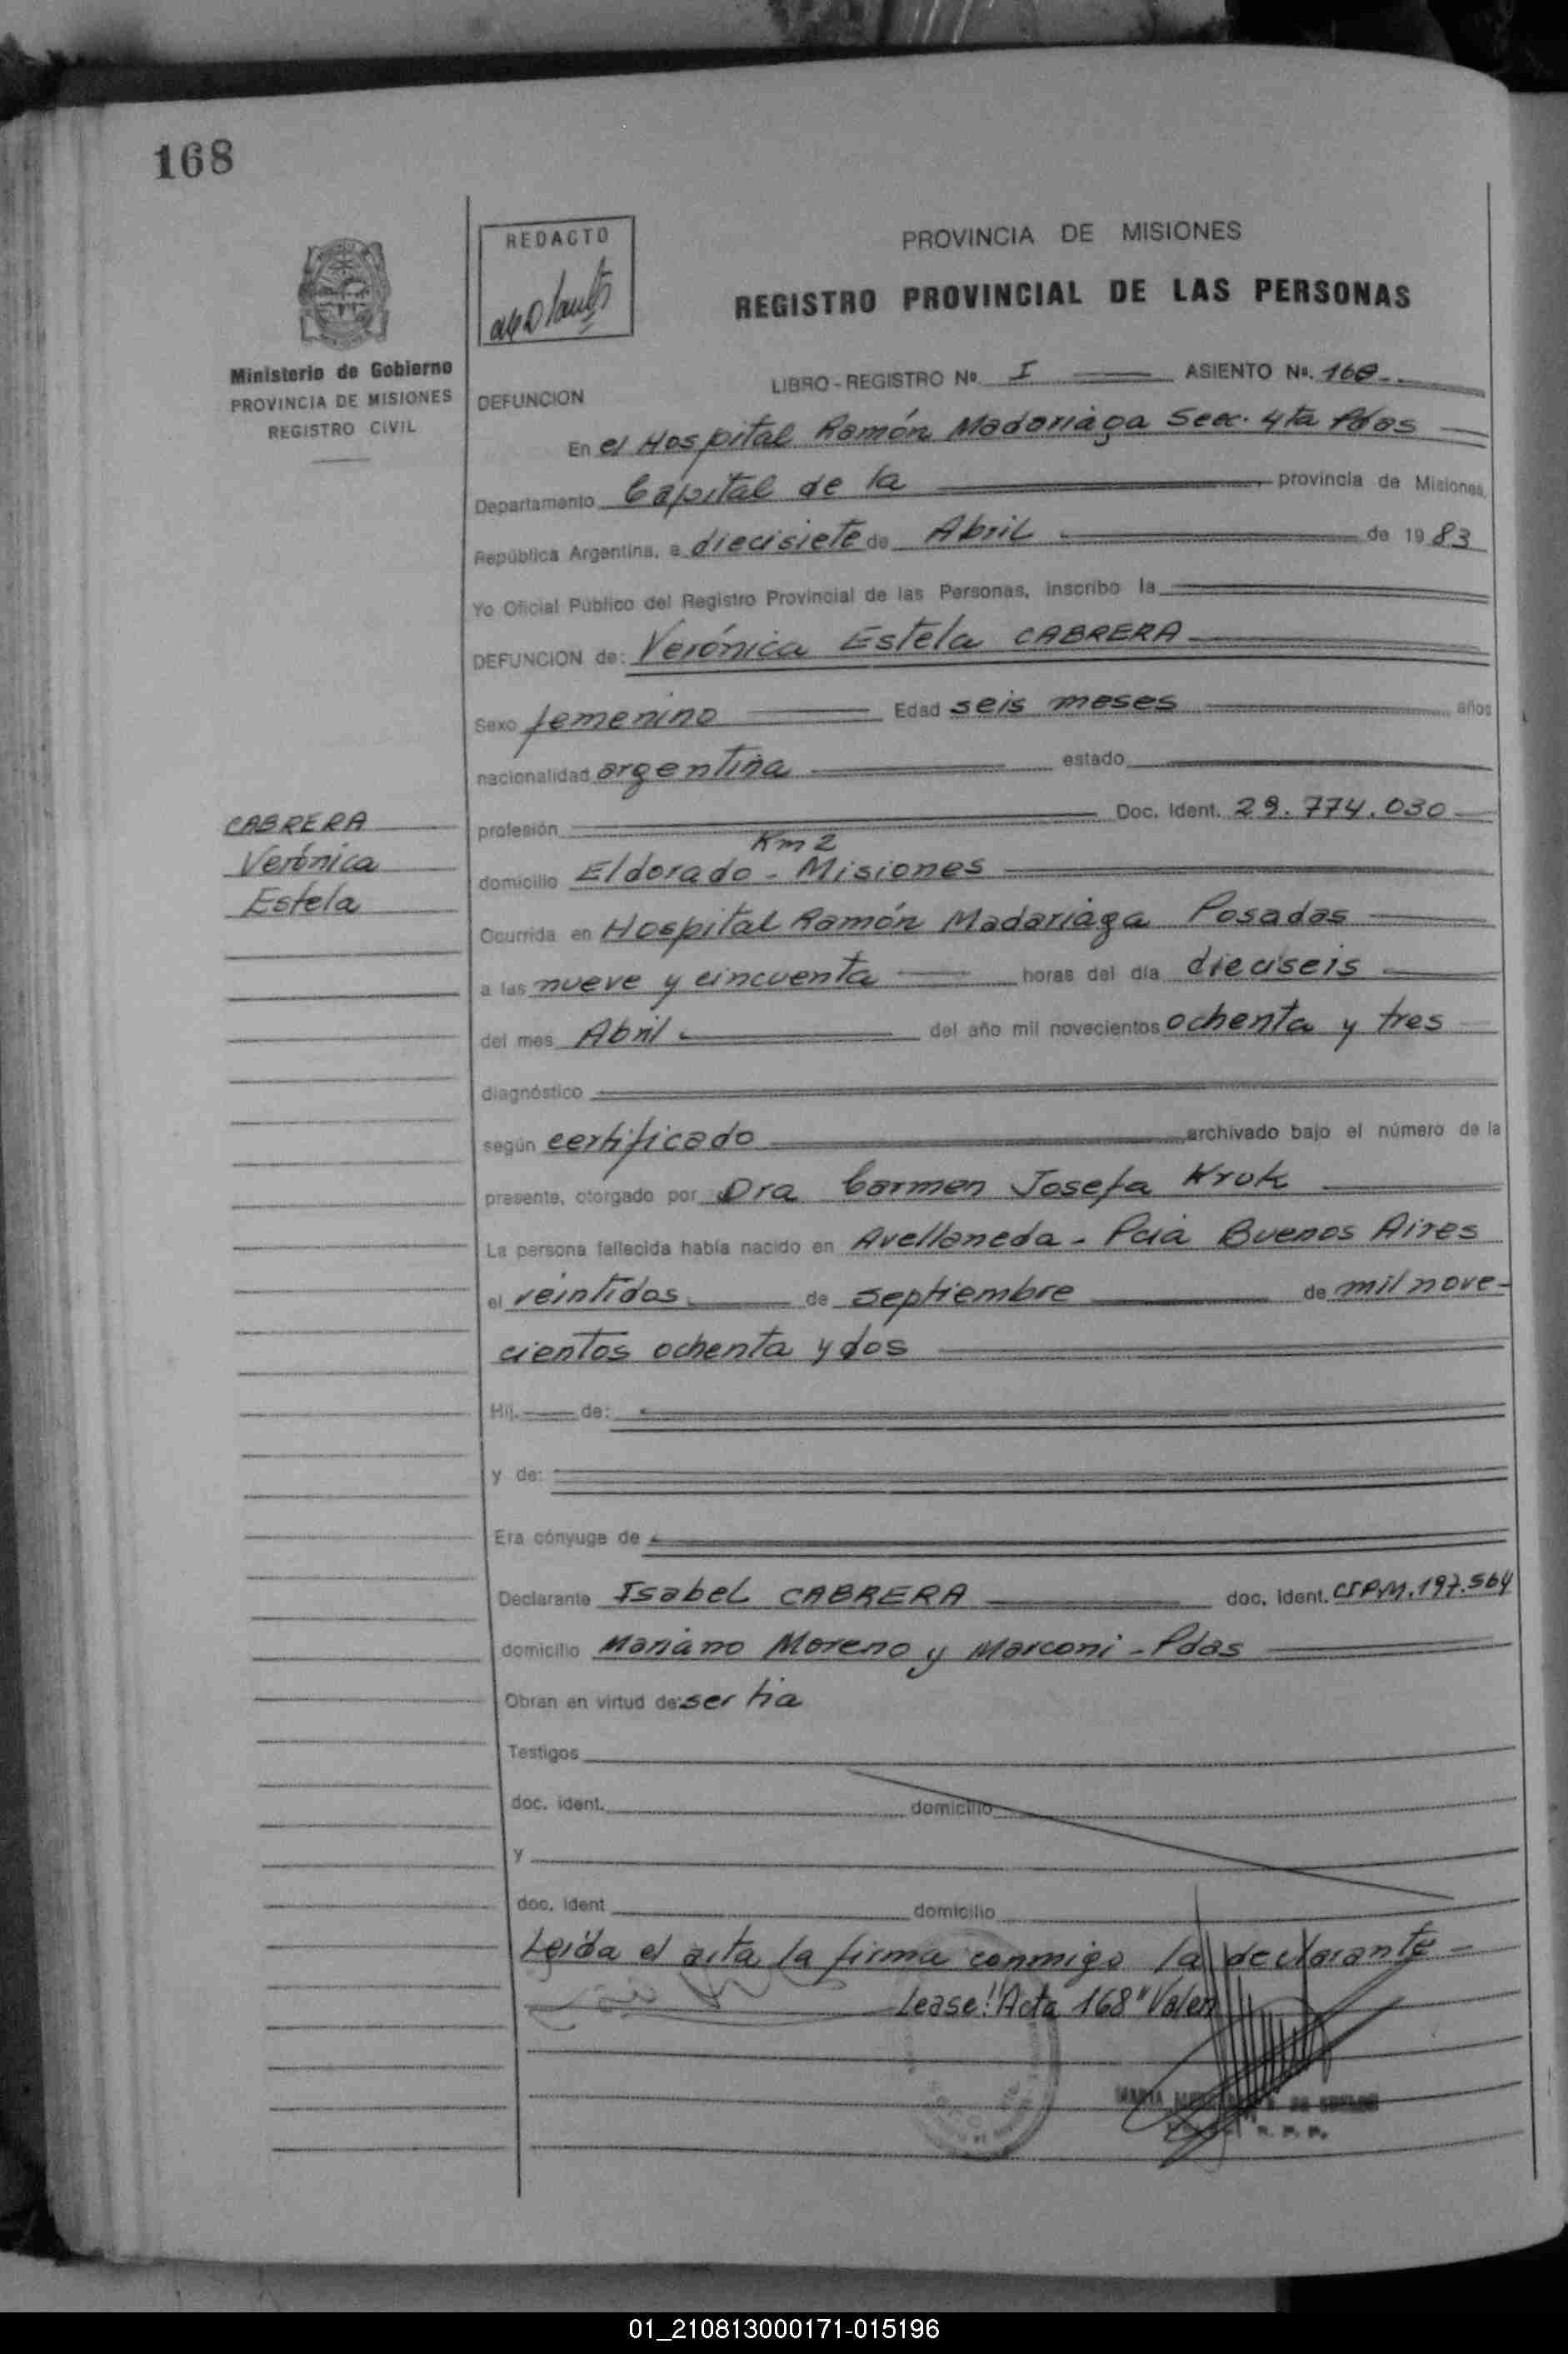 168
REDACTO
PROVINCIA DE MISIONES
REGISTRO PROVINCIAL DE LAS PERSONAS
Ministerio de Gobierno
PROVINCIA DE MISIONES
REGISTRO CIVIL
DEFUNCION
LIBRO - REGISTRO Nº I ASIENTO Nº. 168
En el Hospital Ramón Madariaga Secc. 4ta Pdas
Departamento Capital de la provincia de Misiones
República Argentina, a diecisiete de Abril de 1983
Yo Oficial Público del Registro Provincial de las Personas, inscribo la
DEFUNCION de: Verónica Estela CABRERA
Sexo femenino Edad seis meses años
nacionalidad argentina estado
profesión Doc. Ident. 29.774.030
Km 2
domicilio Eldorado - Misiones
CABRERA
Verónica
Estela
Ocurrida en Hospital Ramón Madariaga Posadas
a las nueve y cincuenta horas del día dieciseis
del mes Abril del año mil novecientos ochenta y tres
diagnóstico
según certificado archivado bajo el número de la
presente, otorgado por Dra Carmen Josefa Kruk
La persona fallecida había nacido en Avellaneda - Pcia Buenos Aires
el veintidos de septiembre de mil nove-
cientos ochenta y dos
Hij. de:
y de:
Era cónyuge de
Declarante Isabel CABRERA doc. ident. CIPM.197.564
domicilio Mariano Moreno y Marconi - Pdas
Obran en virtud de: ser tia
Testigos
doc. ident. domicilio
y
doc. ident domicilio
Leída el acta la firma conmigo la declarante -
Lease: "Acta 168" Valen
01_210813000171-015196